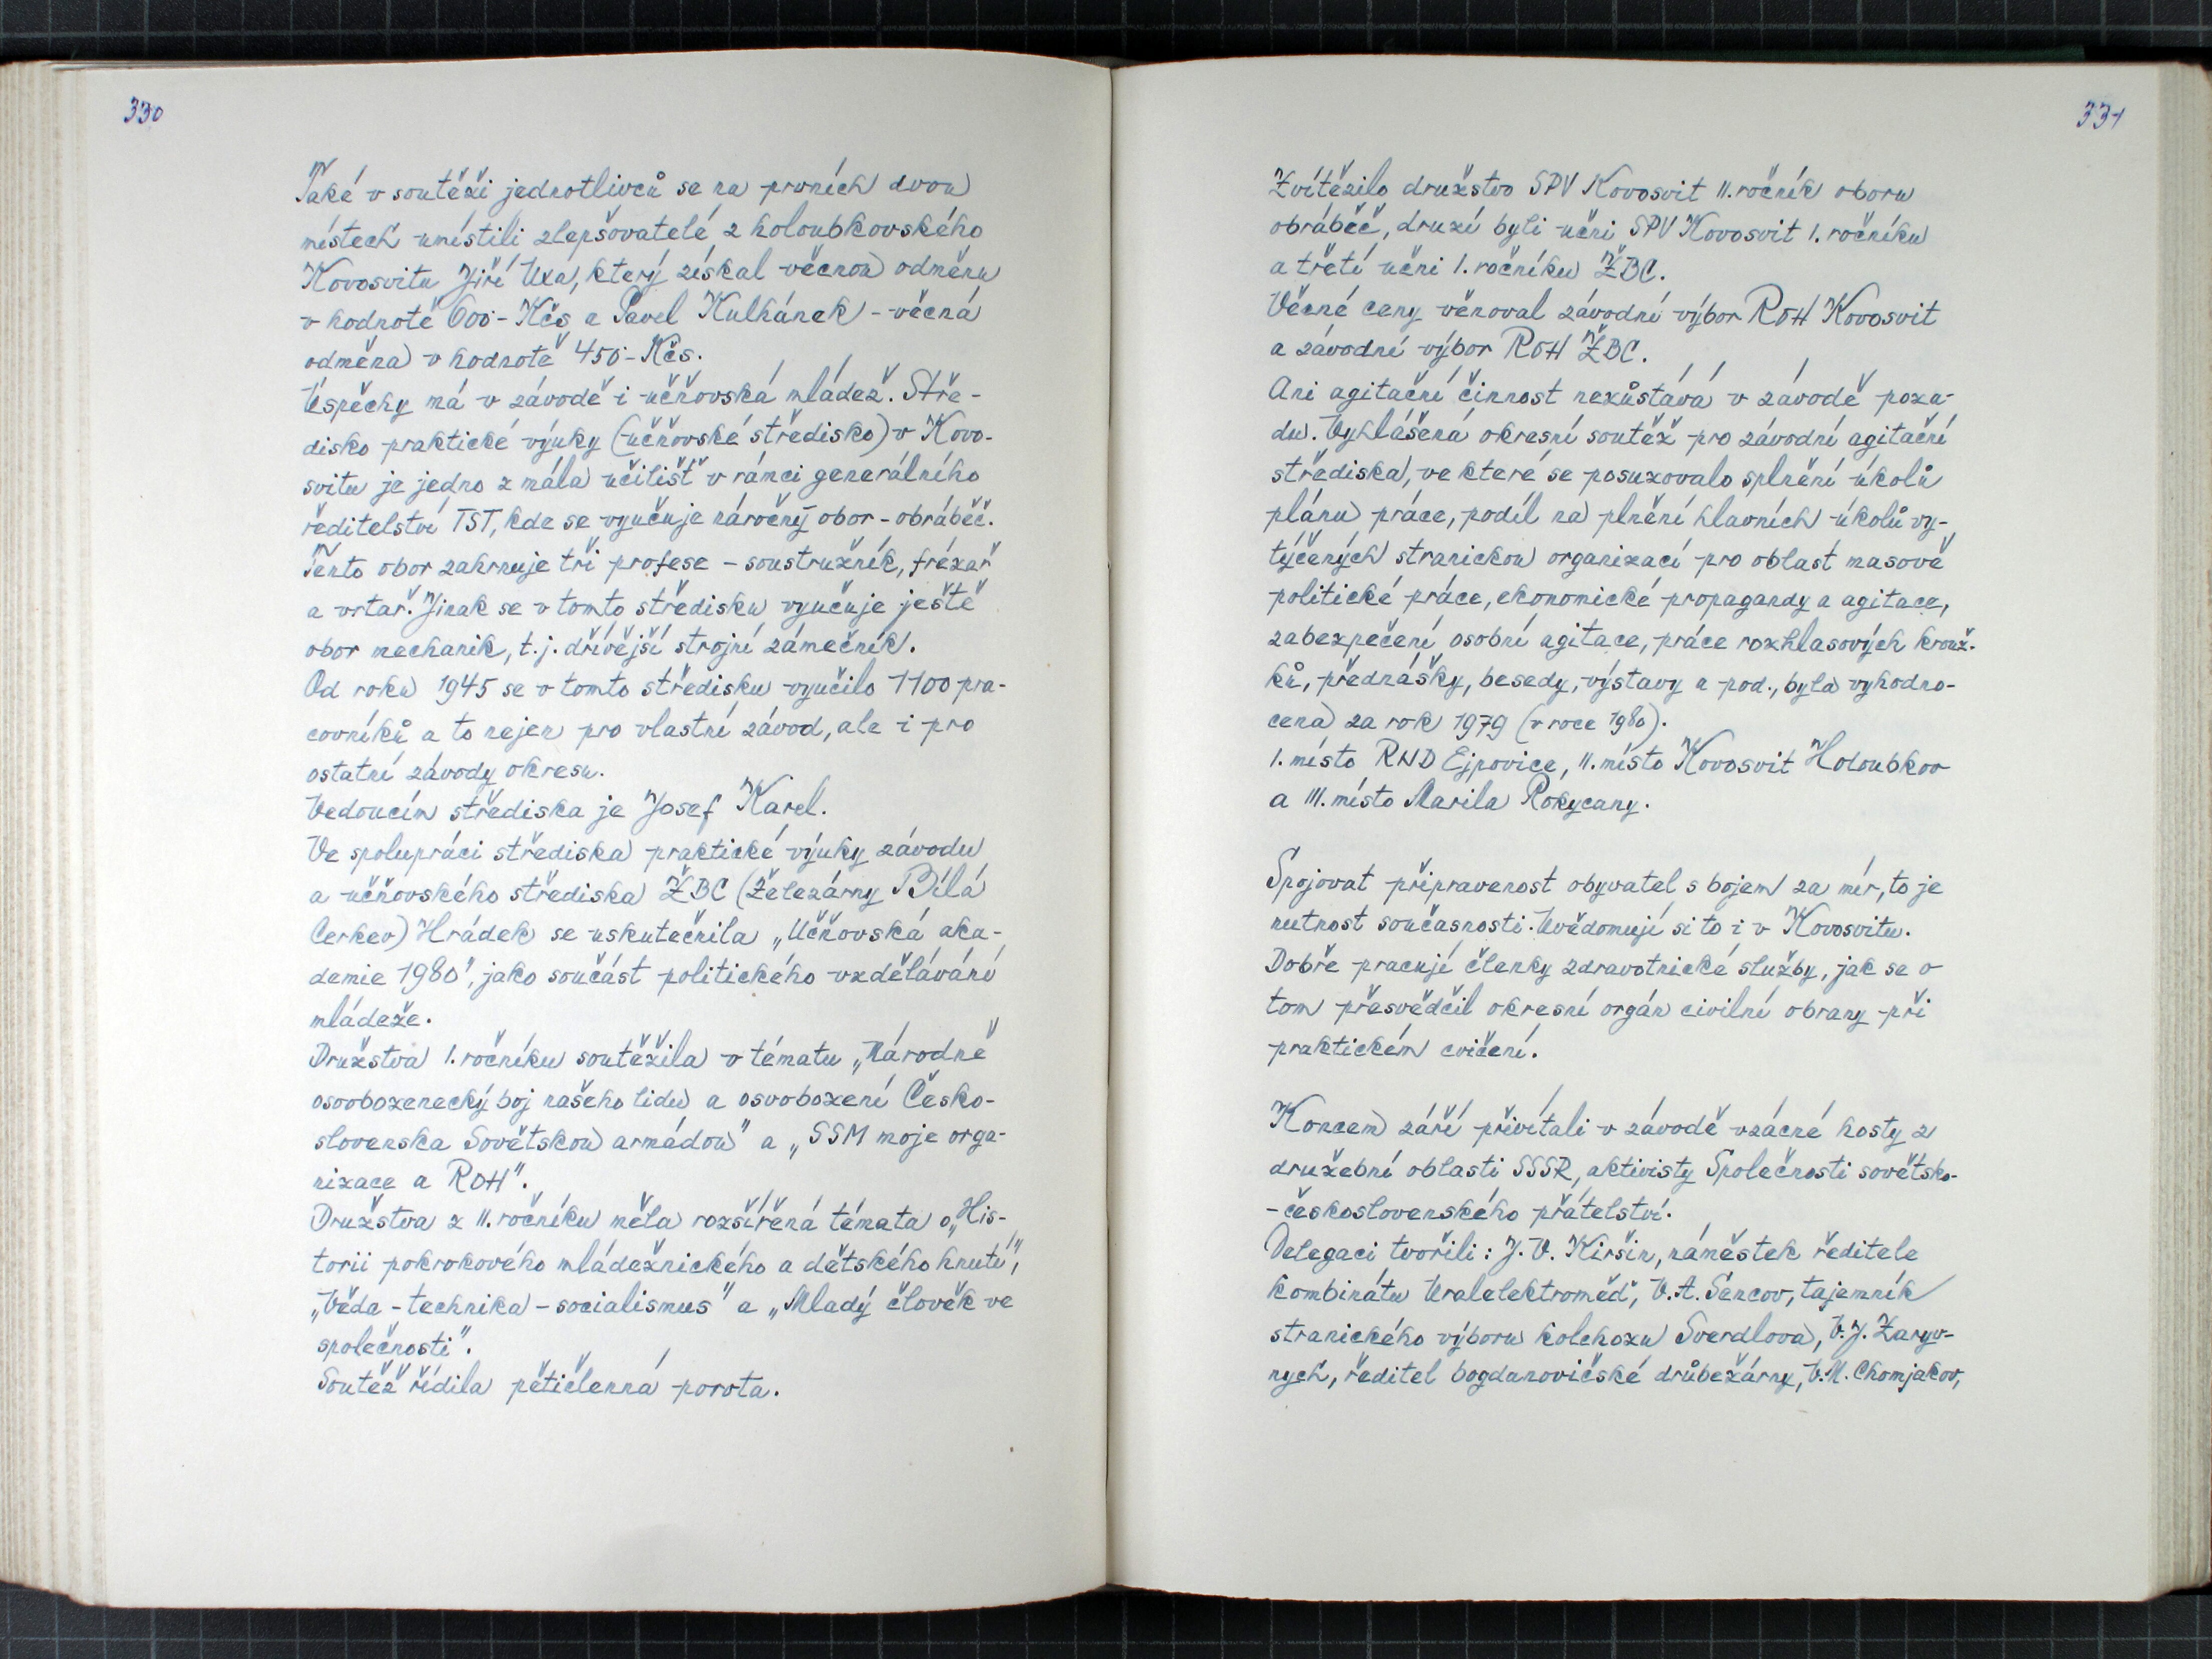 330
Také v soutěži jednotlivců se na prvních dvou
místech umístili zlepšovatelé z holoubkovského
Kovosvitu Jiří Uxa, který získal věcnou odměnu
v hodnotě 600.- Kčs a Pavel Kulhánek - věcná
odměna v hodnotě 450.- Kčs.
Úspěchy má v závodě i učňovská mládež. Stře-
disko praktické výuky (učňovské středisko) v Kovo-
svitu je jedno z mála učilišť v rámci generálního
ředitelství TST, kde se vyučuje náročný obor - obráběč.
Tento obor zahrnuje tři profese - soustružník, frézař
a vrtař. Jinak se v tomto středisku vyučuje ještě
obor mechanik, t.j. dřívější strojní zámečník.
Od roku 1945 se v tomto středisku vyučilo 1100 pra-
covníků a to nejen pro vlastní závod, ale i pro
ostatní závody okresu.
Vedoucím střediska je Josef Karel.
Ve spolupráci střediska praktické výuky závodu
a učňovského střediska ŽBC (Železárny Bílá
Cerkev) Hrádek se uskutečnila „Učňovská aka-
demie 1980", jako součást politického vzdělávání
mládeže.
Družstva I. ročníku soutěžila v tématu „Národně
osvobozenecký boj našeho lidu a osvobození Česko-
slovenska Sovětskou armádou" a „SSM moje orga-
nizace a ROH".
Družstva z II. ročníku měla rozšířená témata o „His-
torii pokrokového mládežnického a dětského hnutí",
„Věda - technika - socialismus" a „Mladý člověk ve
společnosti".
Soutěž řídila pětičlenná porota.
331
Zvítězilo družstvo SPV Kovosvit II. ročník oboru
obráběč, druzí byli učni SPV Kovosvit I. ročníku
a třetí učni I. ročníku ŽBC.
Věcné ceny věnoval závodní výbor ROH Kovosvit
a závodní výbor ROH ŽBC.
Ani agitační činnost nezůstává v závodě poza-
du. Vyhlášená okresní soutěž pro závodní agitační
střediska, ve které se posuzovalo splnění úkolů
plánu práce, podíl na plnění hlavních úkolů vy-
týčených stranickou organizací pro oblast masově
politické práce, ekonomické propagandy a agitace,
zabezpečení osobní agitace, práce rozhlasových krouž-
ků, přednášky, besedy, výstavy a pod., byla vyhodno-
cena za rok 1979 (v roce 1980).
I. místo RND Ejpovice, II. místo Kovosvit Holoubkov
a III. místo Marila Rokycany.
Spojovat připravenost obyvatel s bojem za mír, to je
nutnost současnosti. Uvědomují si to i v Kovosvitu.
Dobře pracují členky zdravotnické služby, jak se o
tom přesvědčil okresní orgán civilní obrany při
praktickém cvičení.
Koncem září přivítali v závodě vzácné hosty z
družební oblasti SSSR, aktivisty Společnosti sovětsko-
- československého přátelství.
Delegaci tvořili: J. V. Kiršin, náměstek ředitele
kombinátu Uralelektroměď, V. A. Sencov, tajemník
stranického výboru kolchozu Sverdlova, V. J. Zaryv-
nych, ředitel bogdanovičské drůbežárny, V. M. Chomjakov,